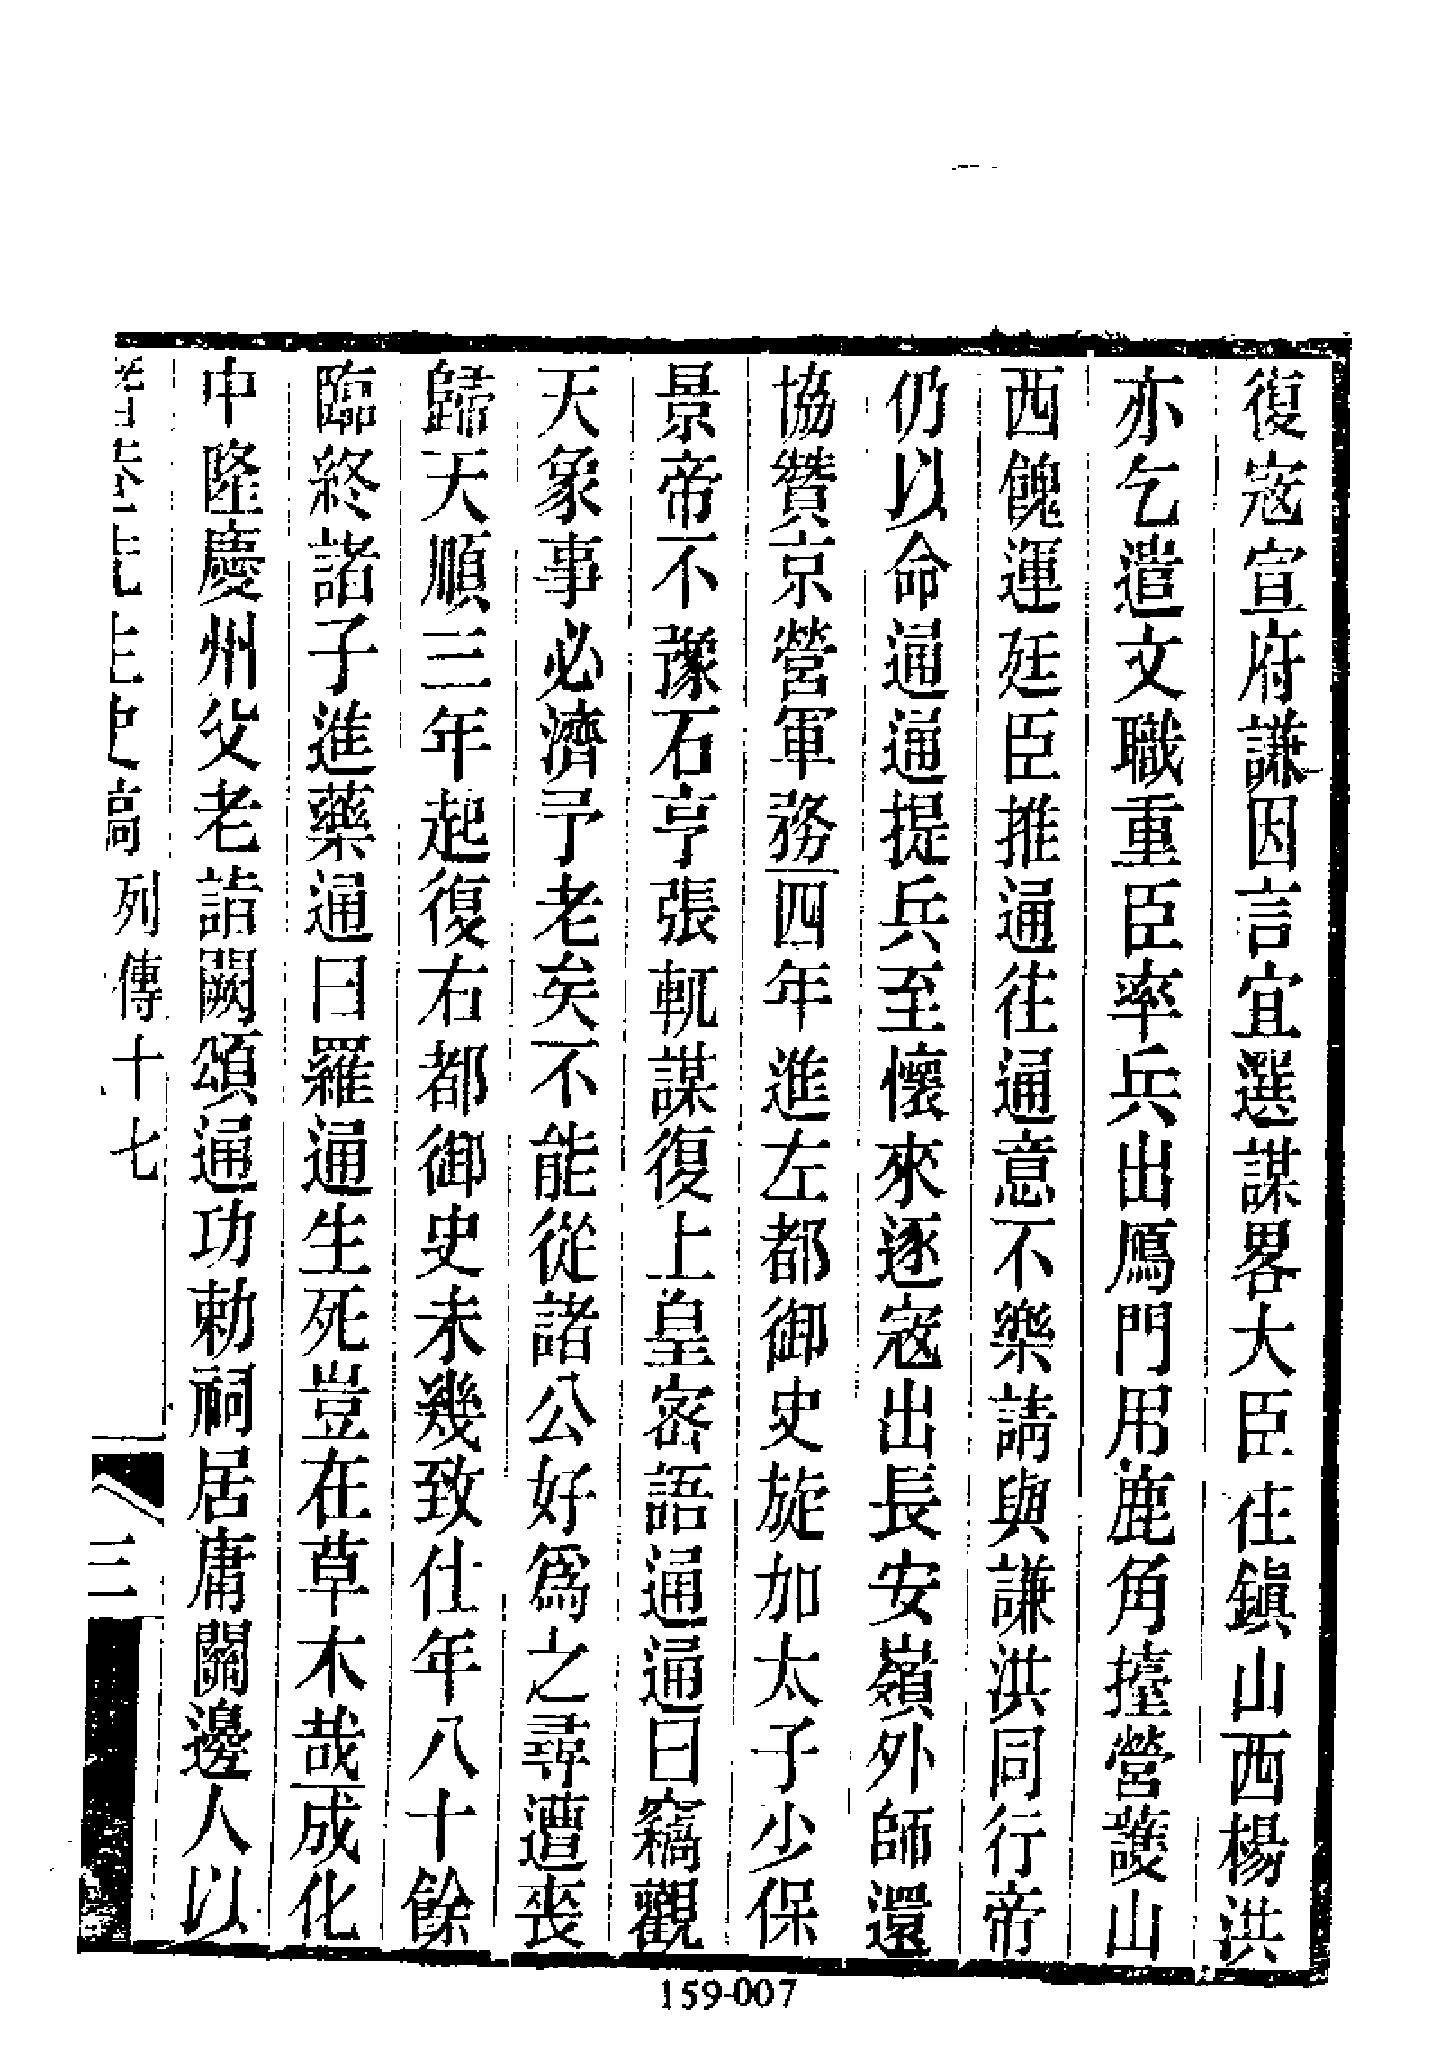 復宼宣府謙因言宜選謀畧大臣往鎭山西楊洪
亦乞遣文職重臣率兵出鴈門用鹿角擡營護山
西餽運廷臣推通往通意不樂請與謙洪同行帝
仍以命通通提兵至懷來逐宼出長安嶺外師還
協贊京營軍務四年進左都御史旋加太子少保
景帝不豫石亨張軏謀復上皇密語通通曰竊觀
天象事必濟予老矣不能從諸公好爲之尋遭喪
歸天順三年起復右都御史未幾致仕年八十餘
臨終諸子進藥通曰羅通生死豈在草木哉成化
中隆慶州父老詣闕頌通功勅祠居庸關邊人以
先生史稿 列傳十七 三
159-007